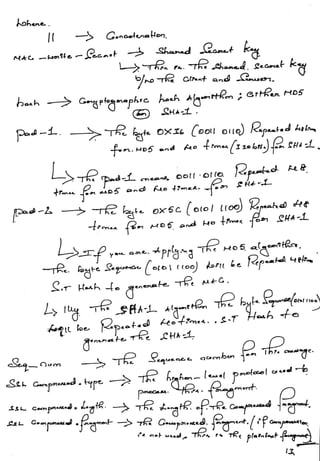 where.
|| → Concatenation.
MAC - write - Secret → Shared Secret key
→ This is The Shared Secret key
b/w The Client and Server.
hash → Cryptographic hash Algorithm; Either MD5
(or) SHA-1.
pad-1. → The byte 0X36 (0011 0110) Repeated 48 times
for MD5 and 40 times for SHA-1.
→ The pad-1 means, 0011 0110 Repeated 48
times for MD5 and 40 times for SHA-1.
pad-2 → The byte 0X5C (0101 1100) Repeated 48
times for MD5 and 40 times for SHA-1.
→ If you are Applying The MD5 algorithm,
The byte Sequence (0101 1100) will be Repeated 48 times
S.T Hash to generate The MAC.
→ The SHA-1 Algorithm The byte Sequence (0101 1100)
will be Repeated 40 times. S.T Hash to
generate The SHA-1.
Seq_num → The Sequence number for This message.
SSL Compressed.type → The higher-level protocol used to
process This fragment.
SSL Compressed.length. → The length of The Compressed fragment.
SSL Compressed.fragment → The Compressed fragment. (if Compression
is not used, Then is The plaintext fragment)
13